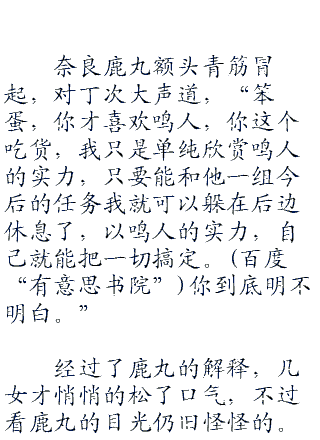 奈良鹿丸额头青筋冒
起，对丁次大声道，“笨
蛋，你才喜欢鸣人，你这个
吃货，我只是单纯欣赏鸣人
的实力，只要能和他一组今
后的任务我就可以躲在后边
休息了，以鸣人的实力，自
己就能把一切搞定。(百度
“有意思书院”)你到底明不
明白。”
经过了鹿丸的解释，几
女才悄悄的松了口气，不过
看鹿丸的目光仍旧怪怪的。